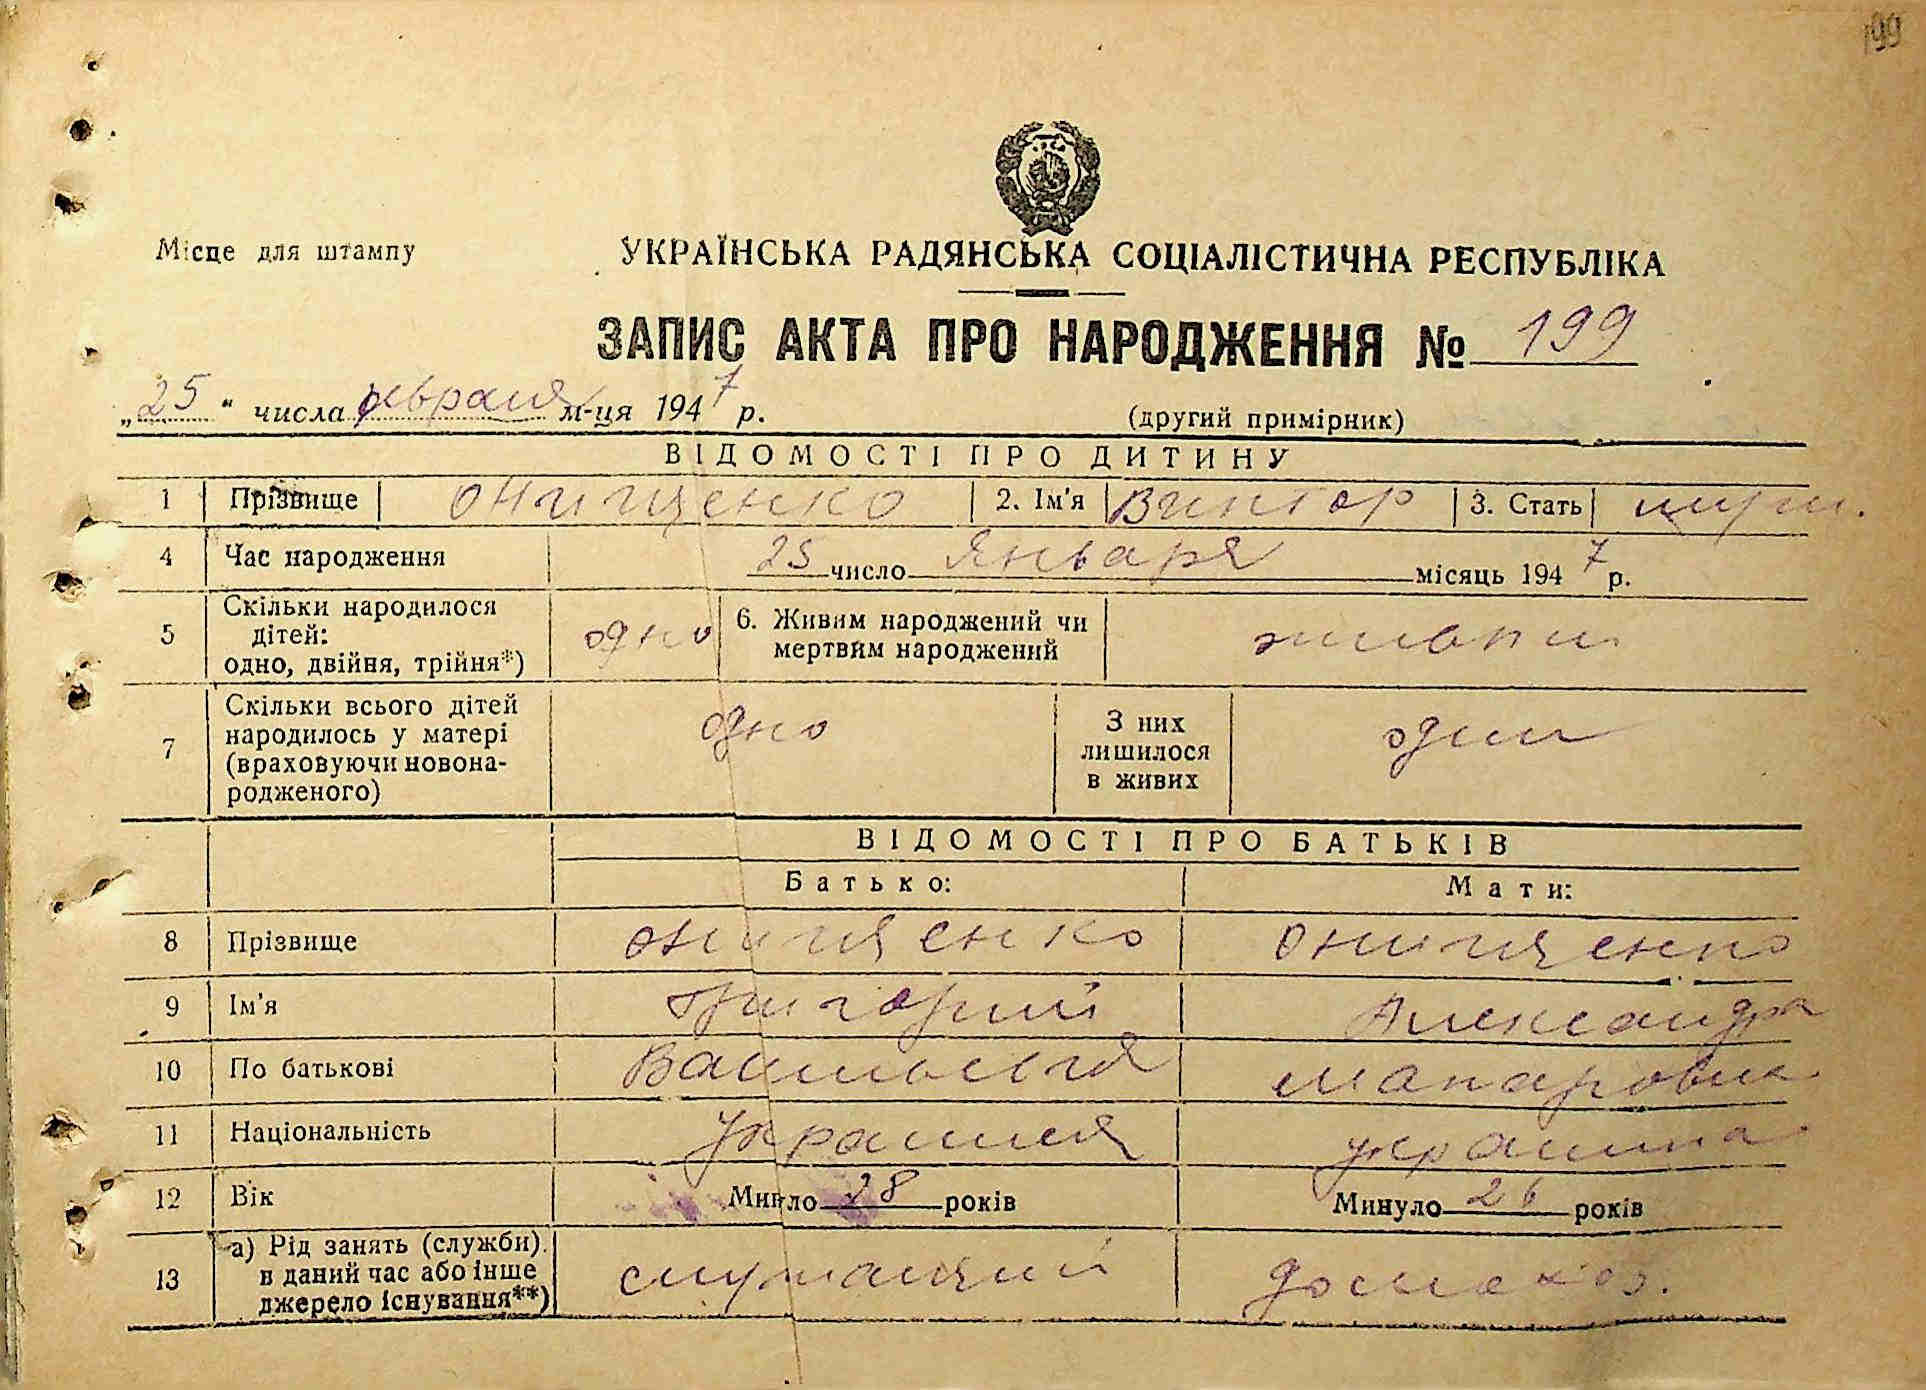 199
Місце для штампу
УКРАЇНСЬКА РАДЯНСЬКА СОЦІАЛІСТИЧНА РЕСПУБЛІКА
ЗАПИС АКТА ПРО НАРОДЖЕННЯ № 199
„25“ числа февраля м-ця 1947 р. (другий примірник)
ВІДОМОСТІ ПРО ДИТИНУ
1 Прізвище Онищенко 2. Ім'я Виктор 3. Стать муж.
4 Час народження 25 число Января місяць 1947 р.
5 Скільки народилося дітей: одно, двійня, трійня*) одно 6. Живим народжений чи мертвим народжений живым
7 Скільки всього дітей народилось у матері (враховуючи новонародженого) одно З них лишилося в живих один
ВІДОМОСТІ ПРО БАТЬКІВ
Батько: Мати:
8 Прізвище Онищенко Онищенко
9 Ім'я Григорий Александра
10 По батькові Васильевич Макаровна
11 Національність украинец украинка
12 Вік Минуло 28 років Минуло 26 років
13 а) Рід занять (служби) в даний час або інше джерело існування**) служащий домохоз.